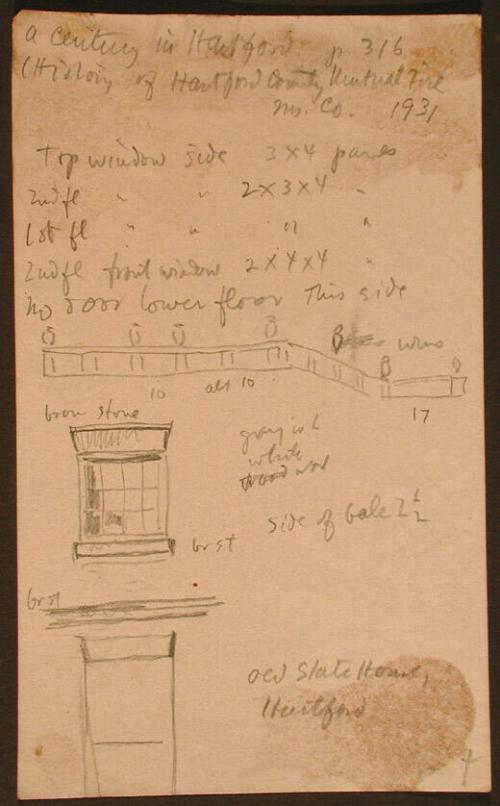 A Century in Hartford p. 316
(History of Hartford County Mutual Fire
Ins. Co. 1931
Top window side 3 x 4 panes
2nd fl " " 2 x 3 x 4 "
1st fl " " " "
2nd fl front window 2 x 4 x 4 "
no door lower floor this side
10 all 10
17
brown stone
grayish
white
wood work
side of gable 2 1/2
br st
br st
Old State House,
Hartford